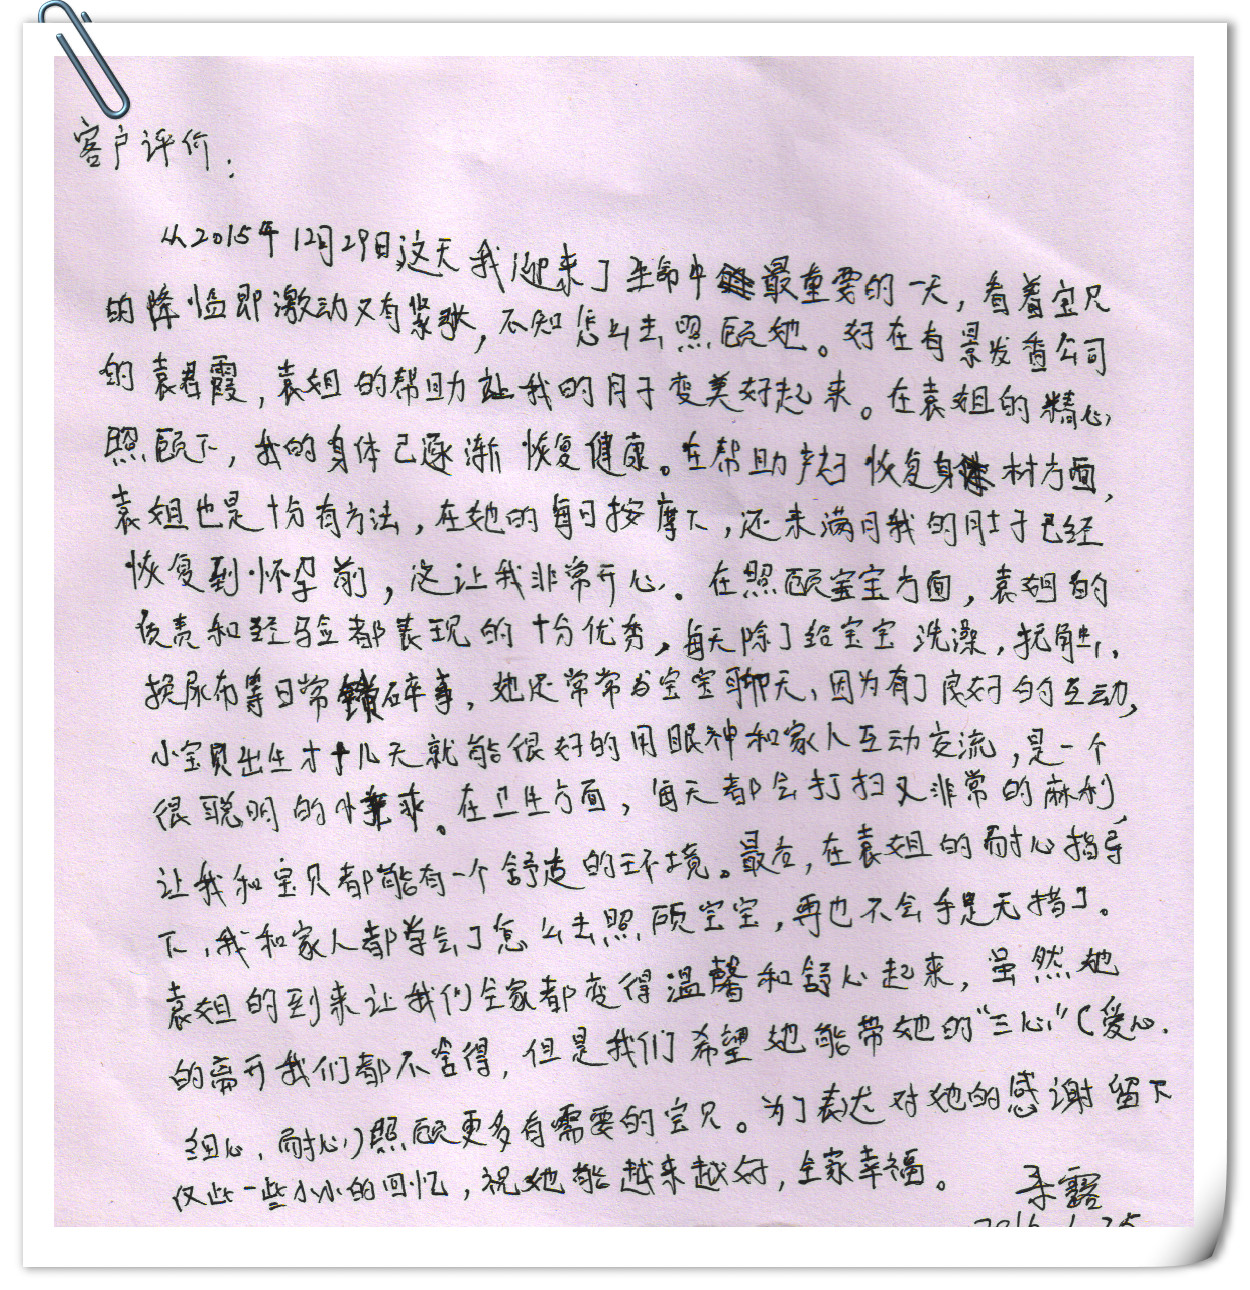 客户评价：
从2015年12月29日这天我迎来了生命中最重要的一天，看着宝贝
的降临即激动又有紧张，不知怎么去照顾她。好在有景发香公司
的袁君霞，袁姐的帮助让我的月子变美好起来。在袁姐的精心
照顾下，我的身体已逐渐恢复健康。在帮助产妇恢复身材方面，
袁姐也是十分有方法，在她的每日按摩下，还未满月我的肚子已经
恢复到怀孕前，这让我非常开心。在照顾宝宝方面，袁姐的
负责和经验都表现的十分优秀，每天除了给宝宝洗澡，抚触，
换尿布等日常琐碎事，她还常常为宝宝聊天，因为有了良好的互动，
小宝贝出生才十几天就能很好的用眼神和家人互动交流，是一个
很聪明的小乖乖。在卫生方面，每天都会打扫又非常的麻利，
让我和宝贝都能有一个舒适的环境。最后，在袁姐的耐心指导
下，我和家人都学会了怎么去照顾宝宝，再也不会手足无措了。
袁姐的到来让我们全家都变得温馨和舒心起来，虽然她
的离开我们都不舍得，但是我们希望她能带她的“三心”（爱心、
细心、耐心）照顾更多有需要的宝贝。为了表达对她的感谢留下
仅此一些小小的回忆，祝她能越来越好，全家幸福。
露
2016.1.25